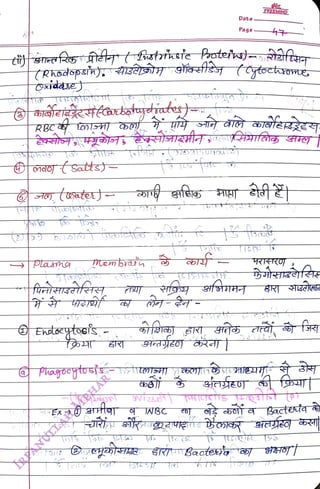 Date
Page 47
(ii) आन्तरिक प्रोटीन (Instrinsic Proteins) - रोडोप्सिन
(Rhodopsin), साइटोक्रोम ऑक्सीडेज (Cytochrome
Oxidase)
③ कार्बोहाइड्रेट्स (Carbohydrates) -
RBC की प्लाज्मा कला में पाये जाने वाले कार्बोहाइड्रेट्स
हेक्सोज, फ्यूकोज, हेक्सोजाइमीन, सियालिक अम्ल |
④ लवण (Salts) -
⑤ जल (Water) - काफी अधिक मात्रा होती है |
→ Plasma Membrain के कार्य - परासरण,
फेगोसाइटोसिस
पिनोसाइटोसिस तथा सक्रिय अभिगमन द्वारा
में से पदार्थों का लेन - देन -
① Endocytosis - कोशिका द्वारा अनेक तत्वों को जिस
क्रिया द्वारा अन्तग्रहण करना |
ⓐ Phagocytosis - प्लाज्मा कला के माध्यम से ठोस
कणों के अंतग्रहण की क्रिया |
Ex - ① अमीबा व WBC का बड़े कणों व Bacteria को
चारों ओर कूटपाद फैलाकर अंतग्रहण करना
② ल्यूकोसाइट द्वारा Bacteria का भक्षण |
IRFANULLAH MEHAR